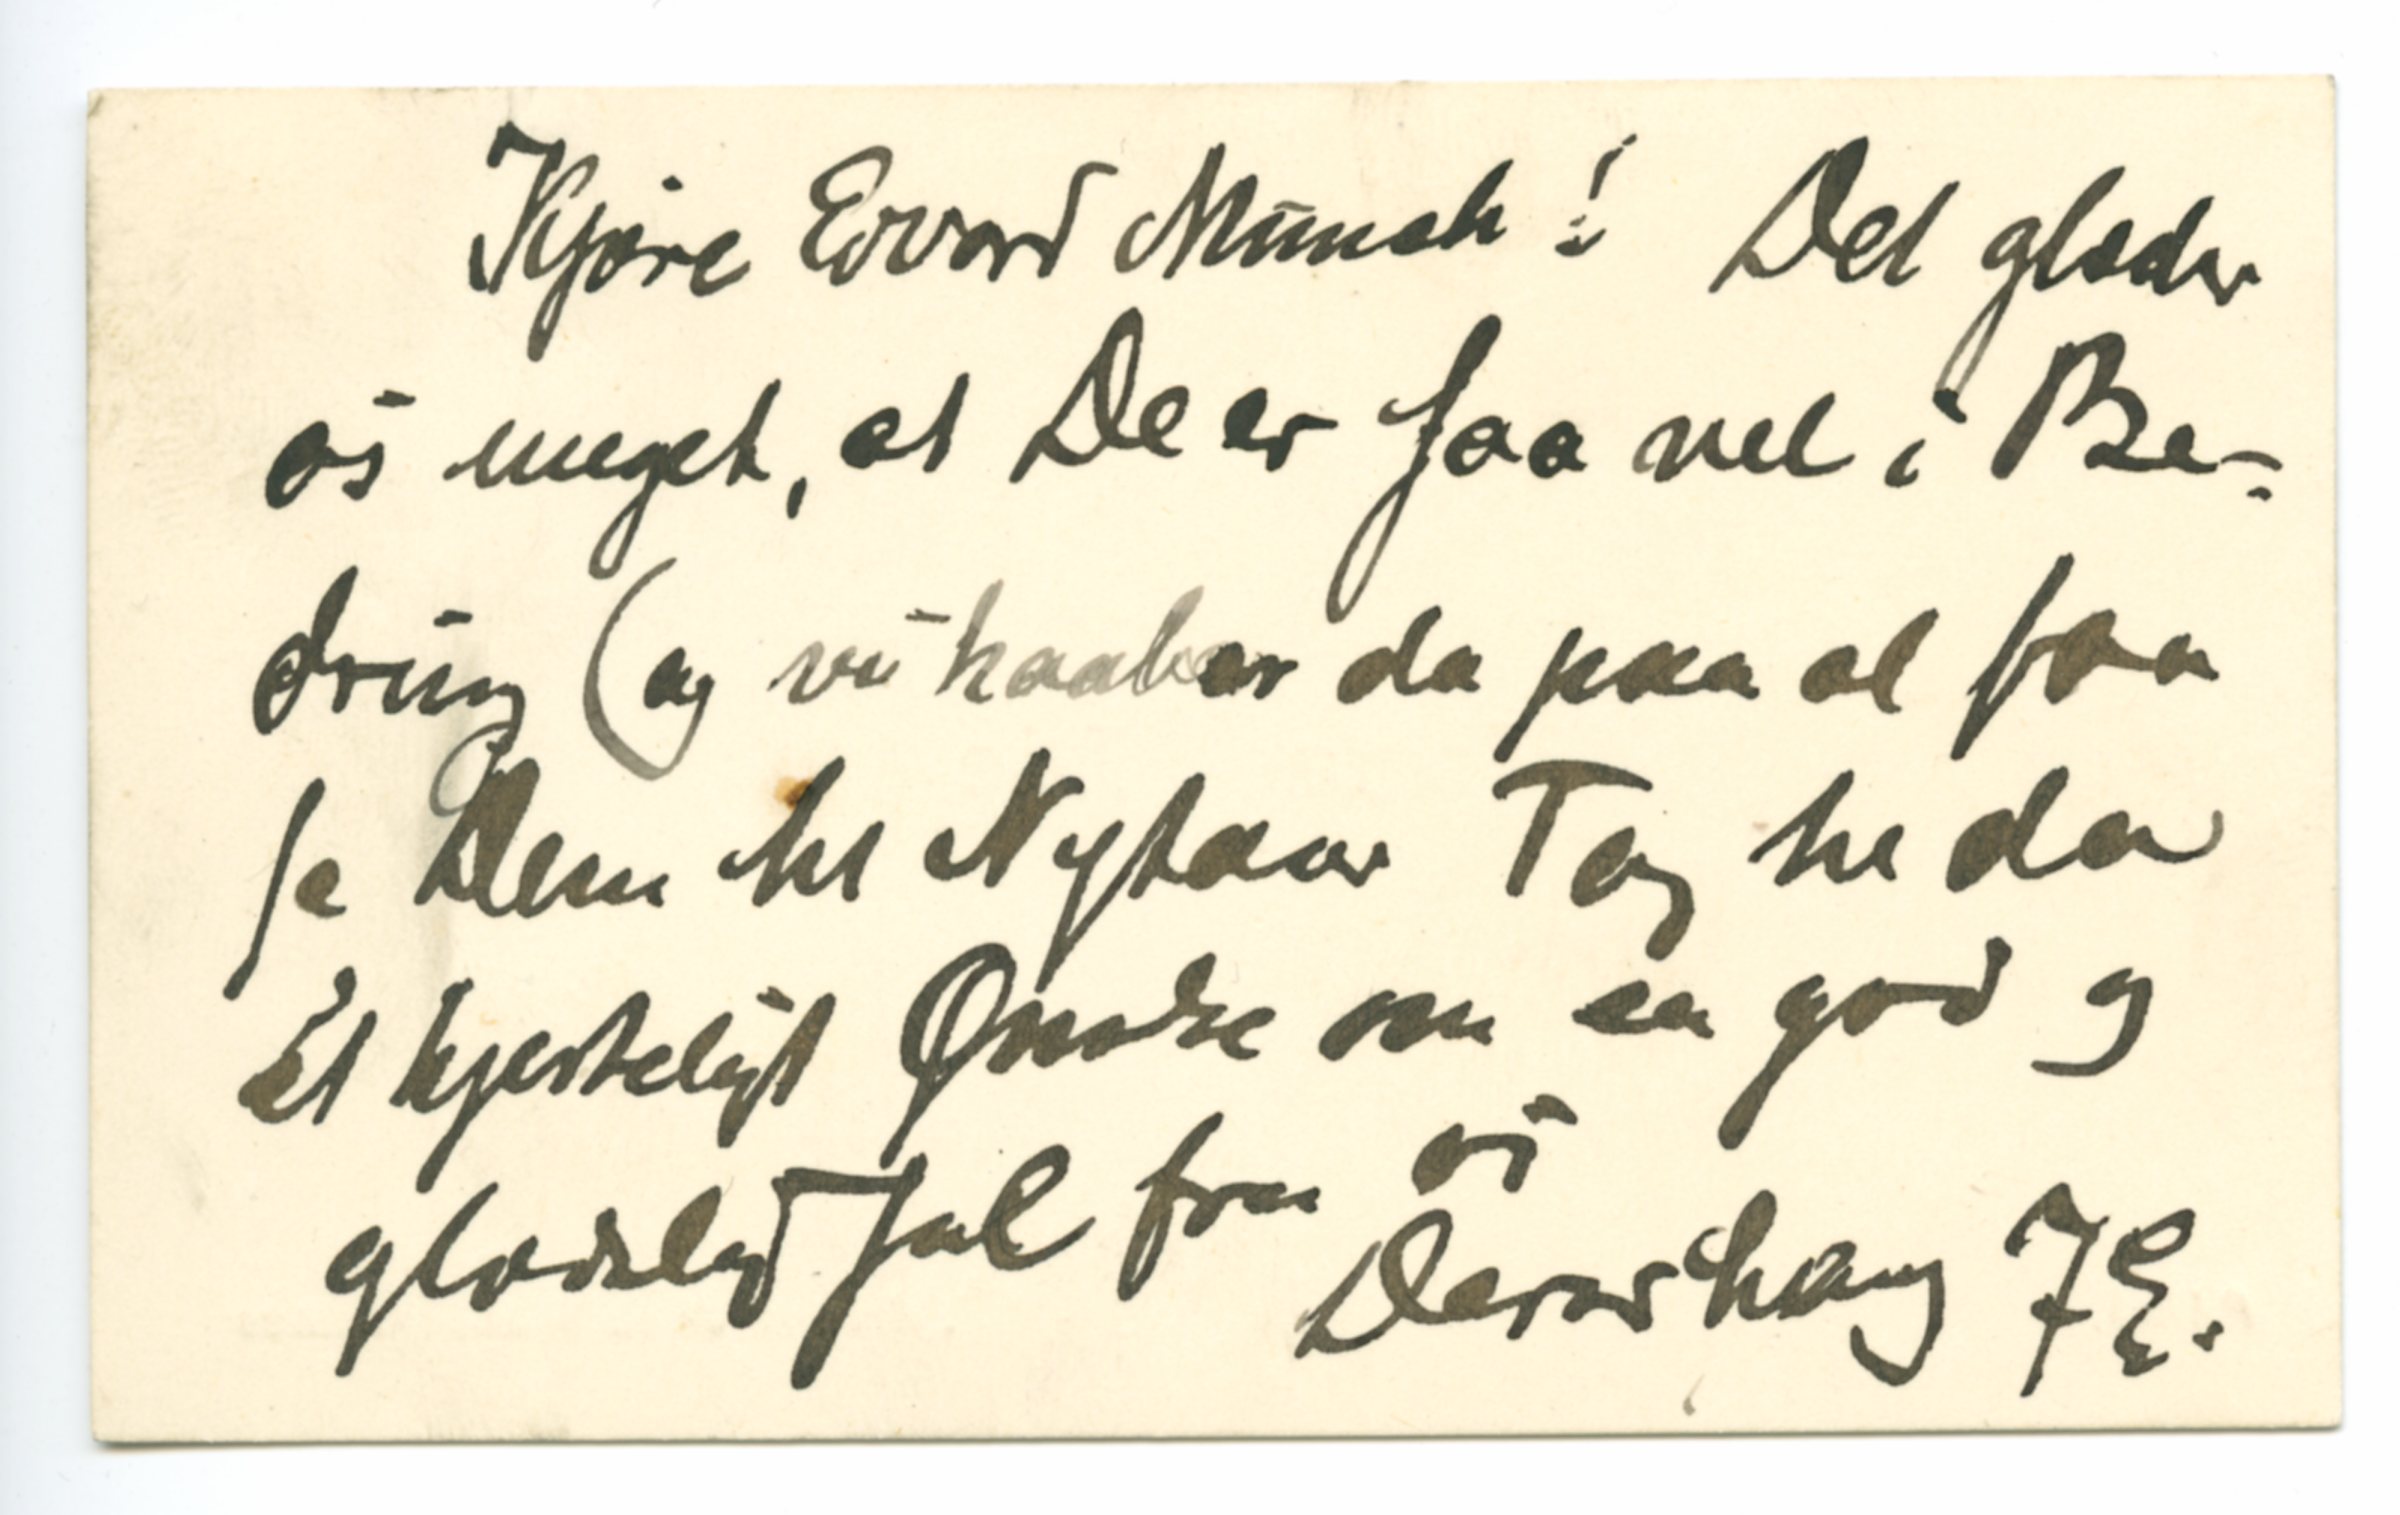 Kjære Edvard Munch! Det glæder
os meget, at De er saa vel i Be-
dring (og vi haaber da paa at faa
se Dem her Nytaar Tag her da
et hjerteligt Ønske om en god og
glædelig Jul fra os
Deres heng